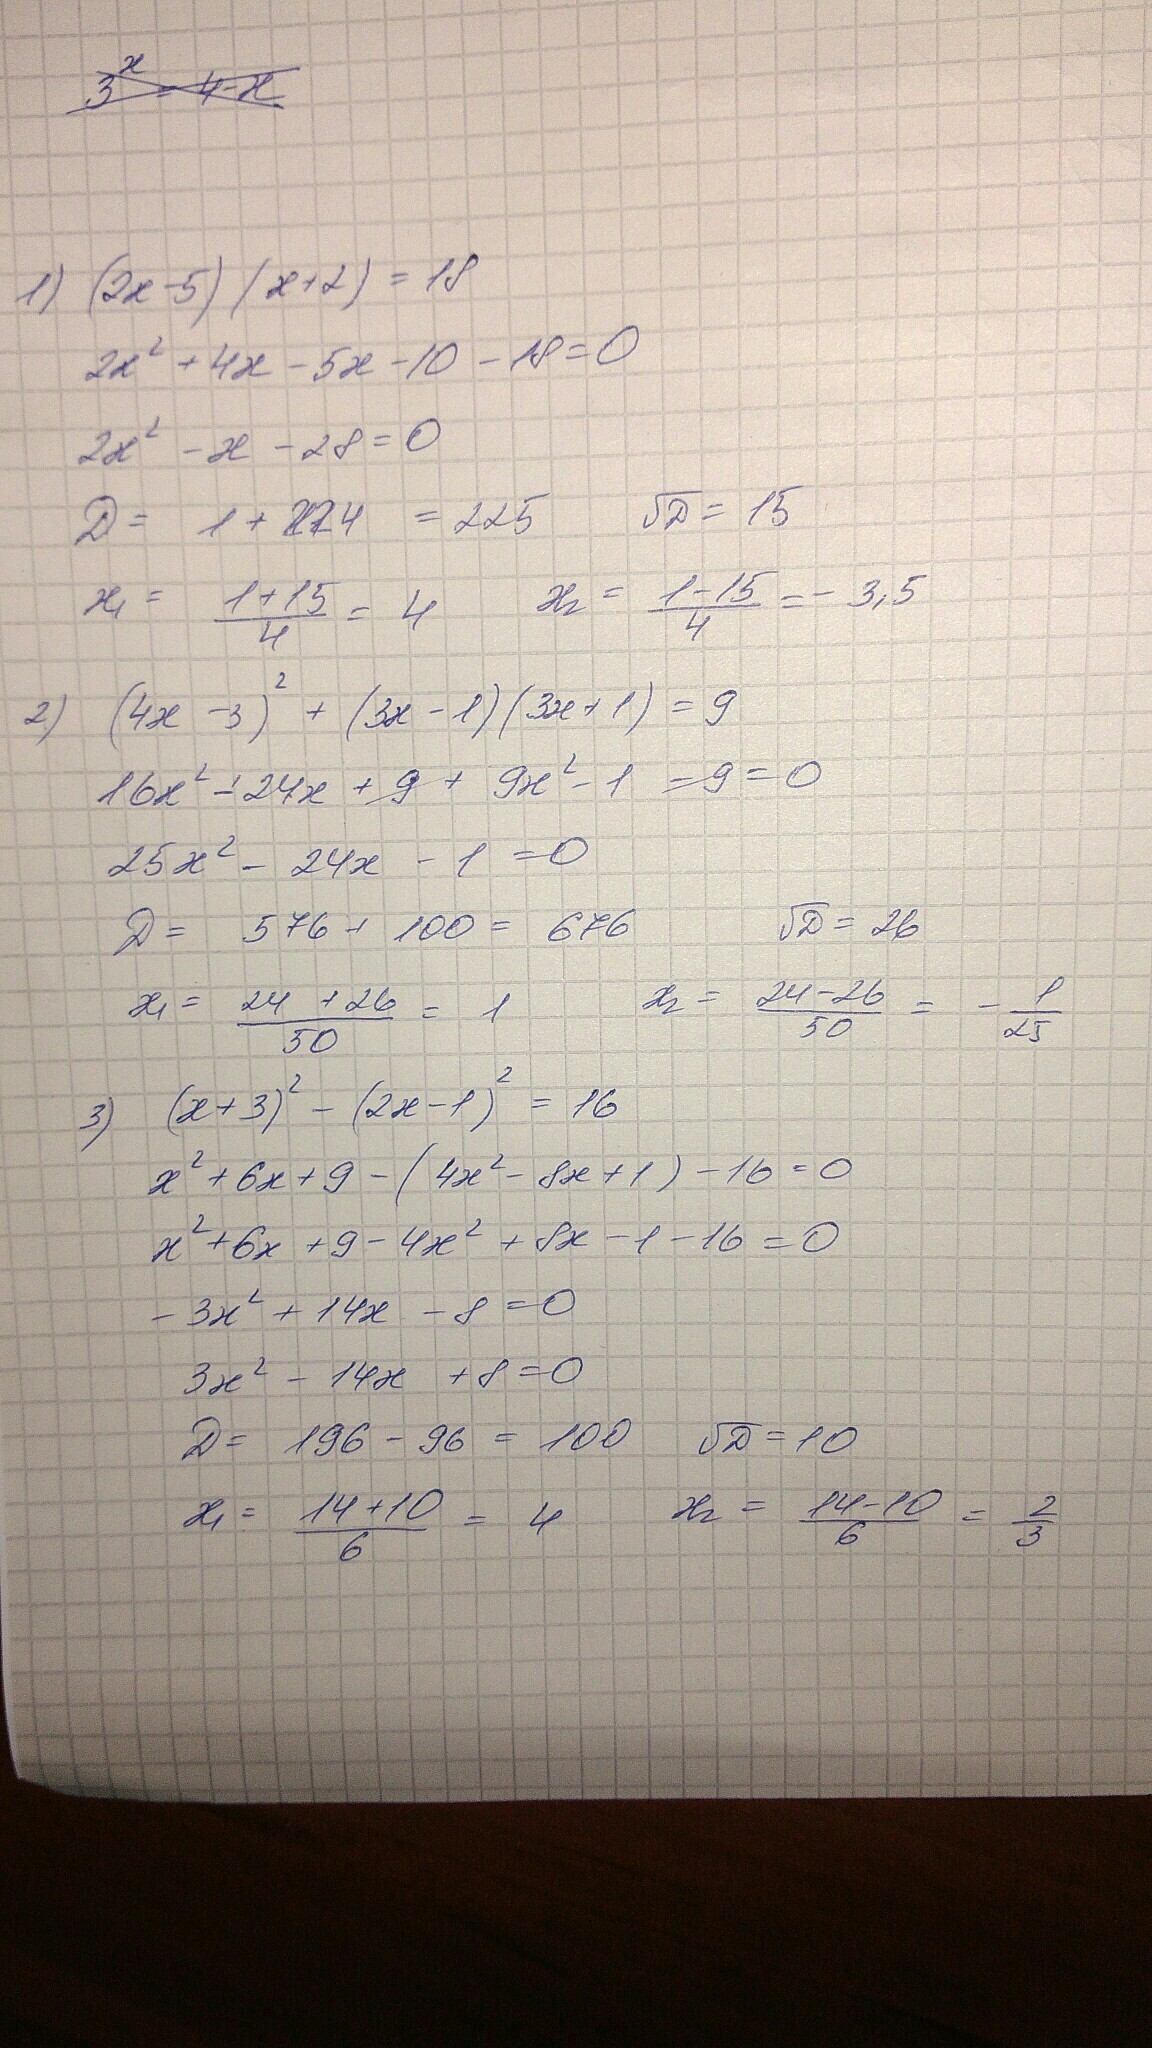 3^x = 4-x
1) (2x-5)(x+2) = 18
2x² + 4x - 5x - 10 - 18 = 0
2x² - x - 28 = 0
D = 1 + 224 = 225 √D = 15
x₁ = (1+15)/4 = 4 x₂ = (1-15)/4 = -3,5
2) (4x - 3)² + (3x - 1)(3x + 1) = 9
16x² - 24x + 9 + 9x² - 1 - 9 = 0
25x² - 24x - 1 = 0
D = 576 + 100 = 676 √D = 26
x₁ = (24 + 26)/50 = 1 x₂ = (24 - 26)/50 = -1/25
3) (x+3)² - (2x-1)² = 16
x² + 6x + 9 - (4x² - 8x + 1) - 16 = 0
x² + 6x + 9 - 4x² + 8x - 1 - 16 = 0
-3x² + 14x - 8 = 0
3x² - 14x + 8 = 0
D = 196 - 96 = 100 √D = 10
x₁ = (14+10)/6 = 4 x₂ = (14-10)/6 = 2/3